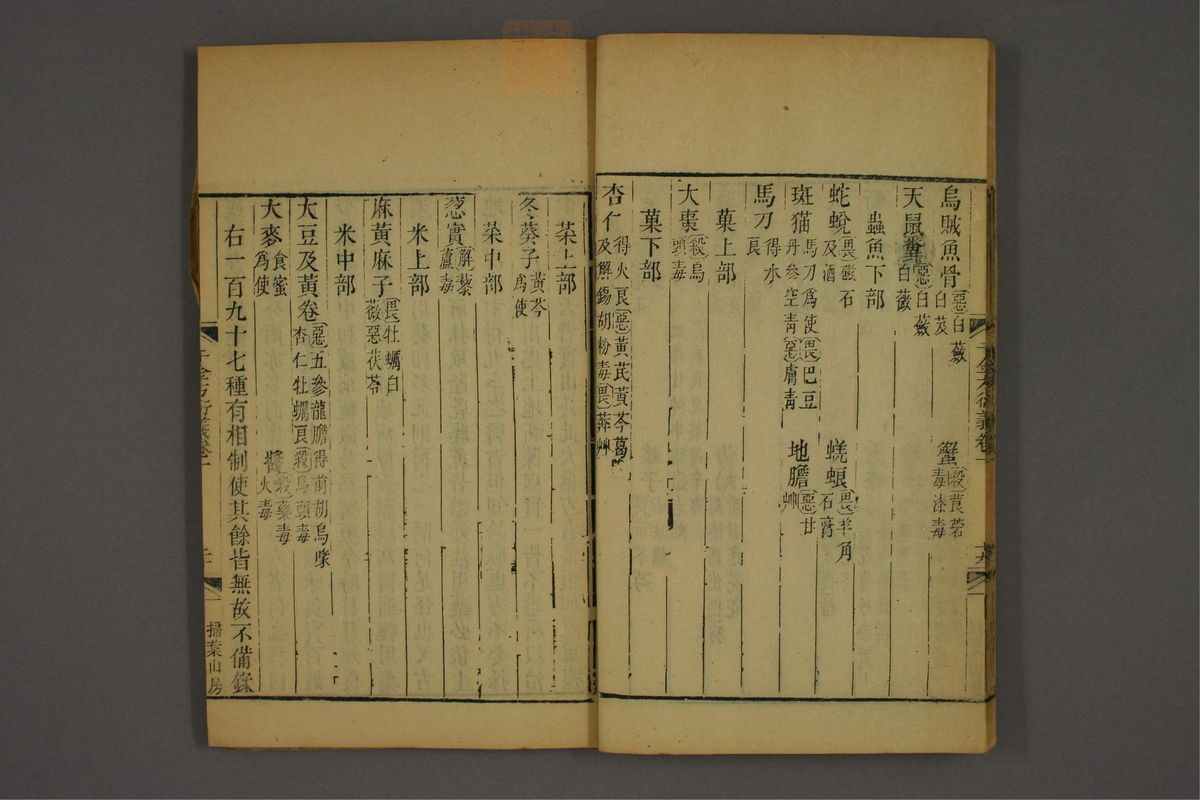 烏賊魚骨惡白蘞白芨　蟹殺莨菪毒漆毒
天鼠糞惡白蘞白薇
蟲魚下部
蛇蛻畏磁石及酒　蜣蜋畏羊角石膏
斑猫馬刀為使畏巴豆丹參空青惡膚青　地膽惡甘艸
馬刀得水良
菓上部
大棗殺烏頭毒
菓下部
杏仁得火良惡黃芪黃芩葛及解錫胡粉毒畏莽艸
菜上部
冬葵子黃芩為使
菜中部
葱實解藜蘆毒
米上部
麻蕡麻子畏牡蠣白薇惡茯苓
米中部
大豆及黃卷惡五參龍膽得前胡烏喙杏仁牡蠣良殺烏頭毒
大麥食蜜為使　醬殺藥毒火毒
右一百九十七種有相制使其餘皆無故不備錄
掃葉山房